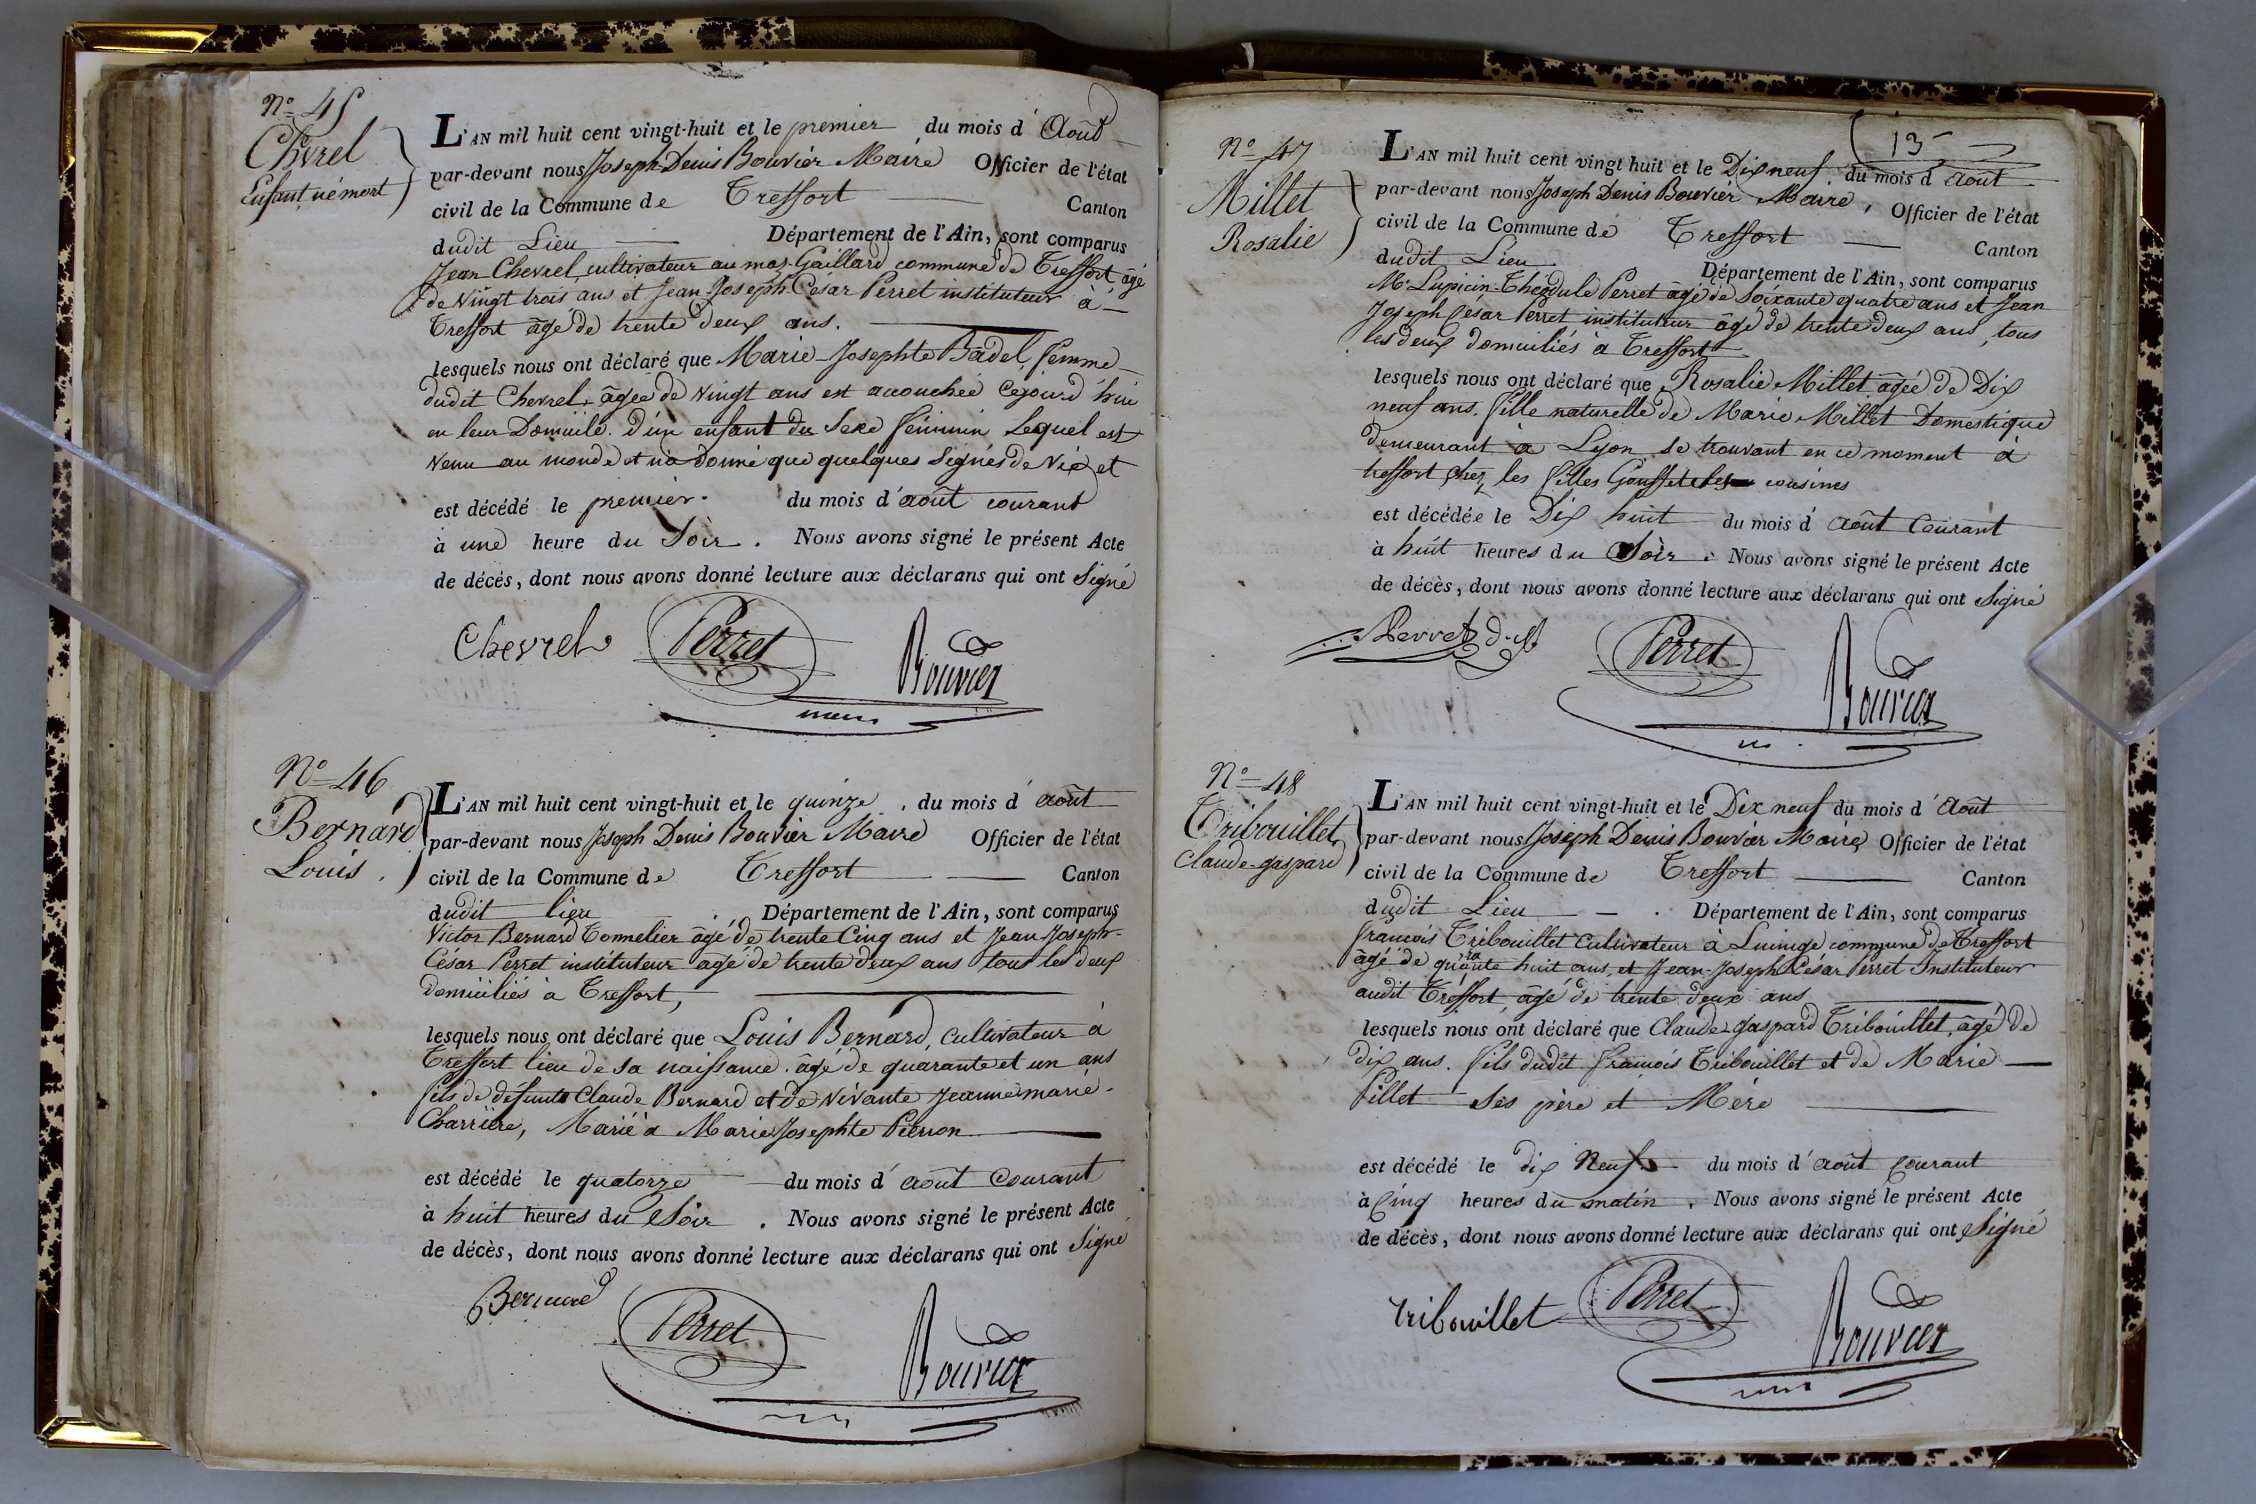 N° 45
Chevrel
Enfant né mort
L'AN mil huit cent vingt-huit et le premier du mois d'Août
par-devant nous Joseph Denis Bouvier Maire Officier de l'état
civil de la Commune de Treffort Canton
dudit Lieu Département de l'Ain, sont comparus
Jean Chevrel cultivateur au mas Gaillard commune de Treffort âgé
de Vingt trois ans et Jean Joseph César Perret instituteur à
Treffort âgé de trente deux ans.
lesquels nous ont déclaré que Marie Josephte Badel, femme
dudit Chevrel, âgée de Vingt ans est accouchée cejourd'hui
en leur Domicile. D'un enfant du Sexe féminin Lequel est
Venu au monde et n'a donné que quelques Signes de Vie et
est décédé le premier. du mois d'août courant
à une heure du Soir. Nous avons signé le présent Acte
de décès, dont nous avons donné lecture aux déclarans qui ont Signé
Chevrel Perret Bouvier
N° 46
Bernard
Louis.
L'AN mil huit cent vingt-huit et le quinze. du mois d'août
par-devant nous Joseph Denis Bouvier Maire Officier de l'état
civil de la Commune de Treffort Canton
dudit lieu. Département de l'Ain, sont comparus
Victor Bernard Tonnelier âgé de trente Cinq ans et Jean Joseph-
César Perret instituteur âgé de trente deux ans tous les deux
domiciliés à Treffort,
lesquels nous ont déclaré que Louis Bernard, cultivateur à
Treffort lieu de sa naissance. âgé de quarante et un ans
fils de défunt Claude Bernard et de Vivante Jeanne marie-
Charrière, Marié à Marie Josephte Pierron
est décédé le quatorze du mois d'août courant
à huit heures du Soir. Nous avons signé le présent Acte
de décès, dont nous avons donné lecture aux déclarans qui ont Signé
Bernard Perret Bouvier
13
N° 47
Millet
Rosalie
L'AN mil huit cent vingt huit et le Dix neuf du mois d'août
par-devant nous Joseph Denis Bouvier Maire, Officier de l'état
civil de la Commune de Treffort Canton
dudit Lieu Département de l'Ain, sont comparus
Mr Lupicin-Théodule Perret âgé de Soixante quatre ans et Jean
Joseph César Perret instituteur âgé de trente deux ans, tous
les deux domiciliés à Treffort
lesquels nous ont déclaré que Rosalie Millet âgée de Dix
neuf ans. fille naturelle de Marie Millet Domestique
demeurant à Lyon se trouvant en ce moment à
treffort chez les filles cousines
est décédée le Dix huit du mois d'août Courant
à huit heures du Soir. Nous avons signé le présent Acte
de décès, dont nous avons donné lecture aux déclarans qui ont Signé
Perret Perret Bouvier
N° 48
Tribouillet
Claude-gaspard
L'AN mil huit cent vingt-huit et le Dix neuf du mois d'Août
par-devant nous Joseph Denis Bouvier Maire Officier de l'état
civil de la Commune de Treffort Canton
dudit Lieu. Département de l'Ain, sont comparus
françois Tribouillet Cultivateur à commune de Treffort
âgé de quarante huit ans, et Jean-Joseph César Perret Instituteur
audit Treffort, âgé de trente deux ans
lesquels nous ont déclaré que Claude gaspard Tribouillet, âgé de
dix ans. fils dudit françois Tribouillet et de Marie
Pillet Ses père et Mère
est décédé le dix Neuf du mois d'août courant
à Cinq heures du matin. Nous avons signé le présent Acte
de décès, dont nous avons donné lecture aux déclarans qui ont Signé
tribouillet Perret Bouvier